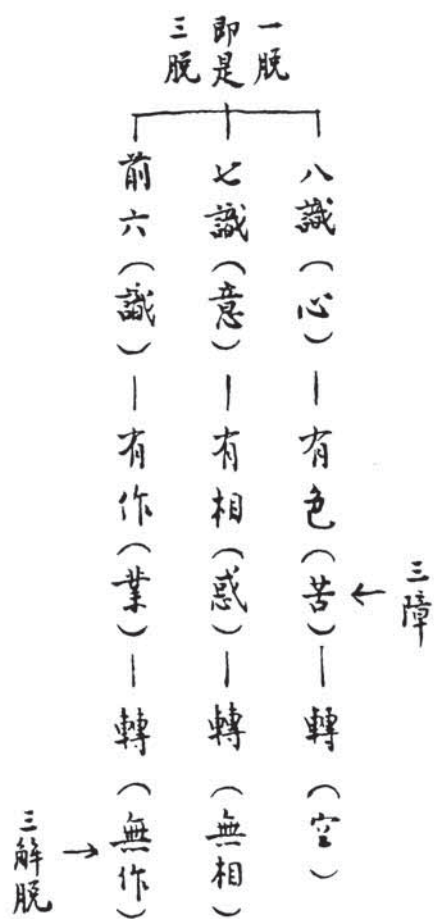 一脫
即是
三脫
八識（心）—有色（苦）—轉（空）
七識（意）—有相（惑）—轉（無相）
前六（識）—有作（業）—轉（無作）
三障
三解脫